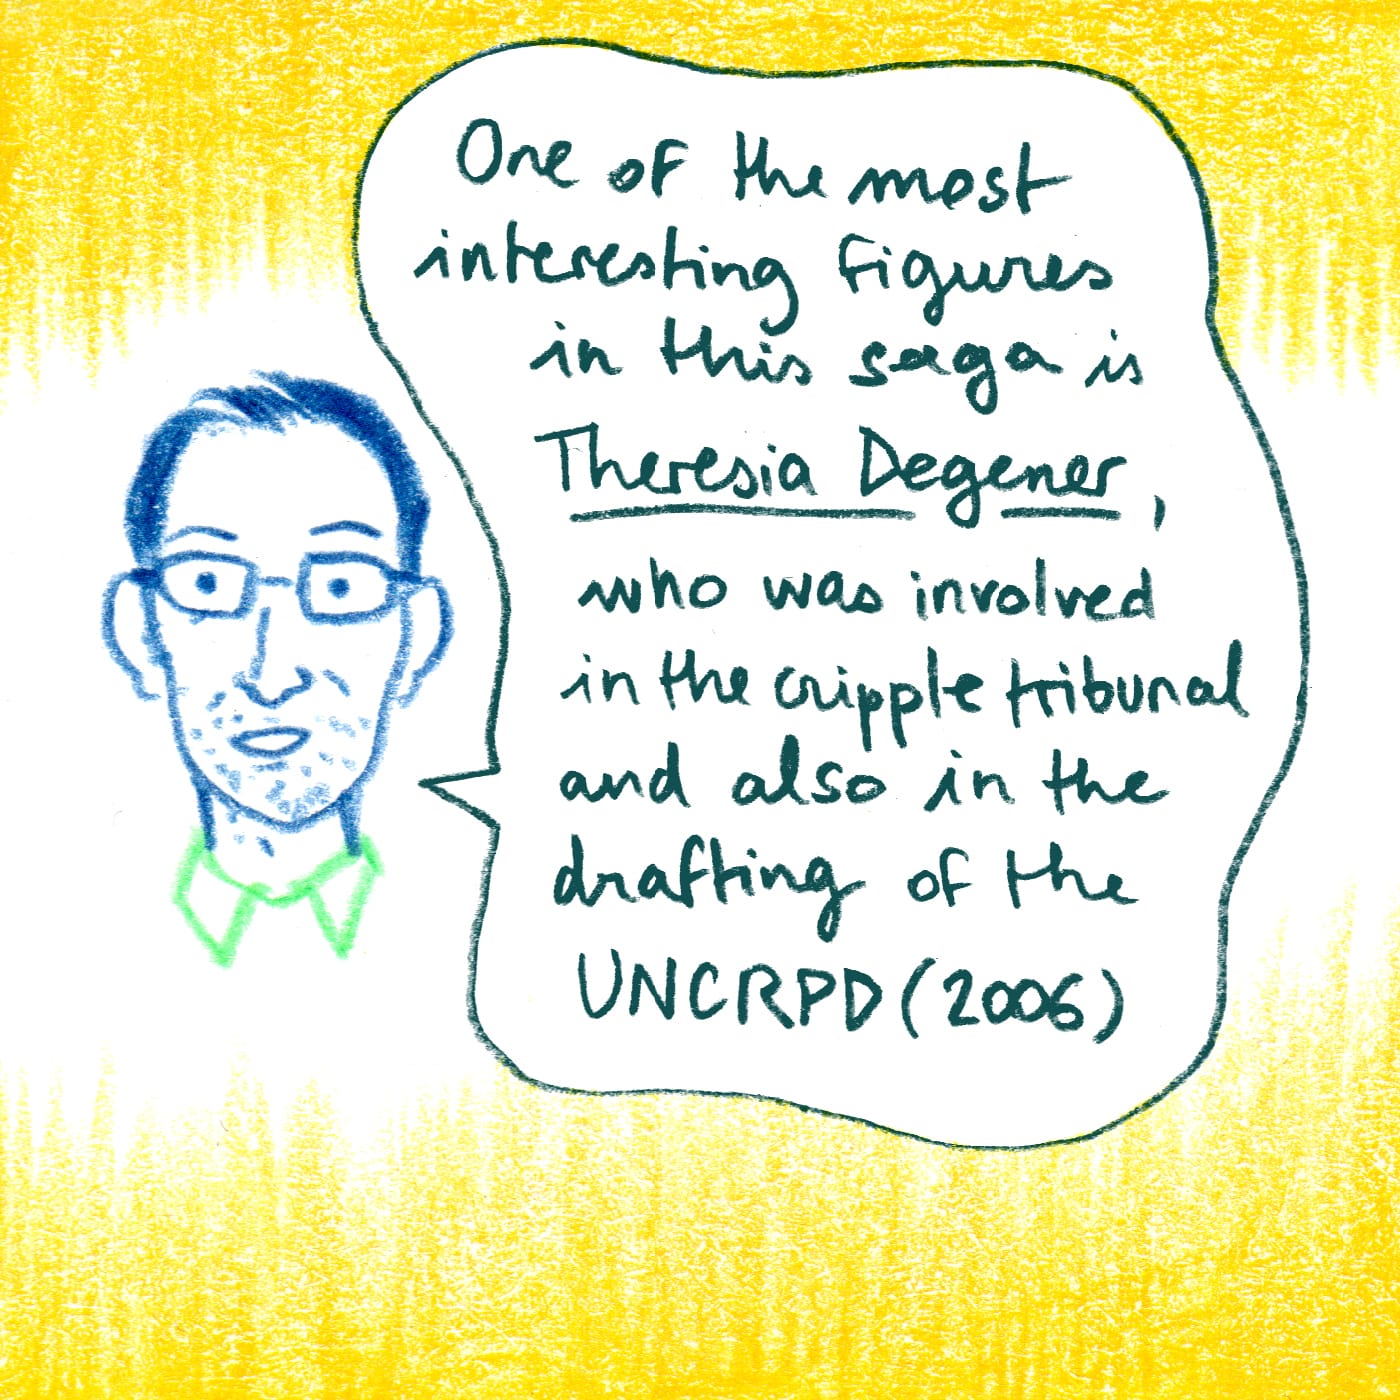 One of the most
interesting figures
in this saga is
Theresia Degener,
who was involved
in the cripple tribunal
and also in the
drafting of the
UNCRPD (2006)